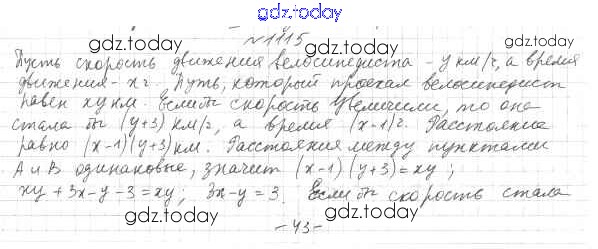 gdz.today
№1115
gdz.today
Пусть скорость движения велосипедиста - y км/ч, а время
движения - x ч. Путь, который проехал велосипедист
равен xy км. Если бы скорость увеличили, то она
стала бы (y+3) км/ч, а время (x-1) ч. Расстояние
равно (x-1)(y+3) км. Расстояния между пунктами
gdz.today
А и В одинаковые, значит (x-1)(y+3)=xy;
xy+3x-y-3=xy; 3x-y=3. Если бы скорость стала
gdz.today
-43-
gdz.today